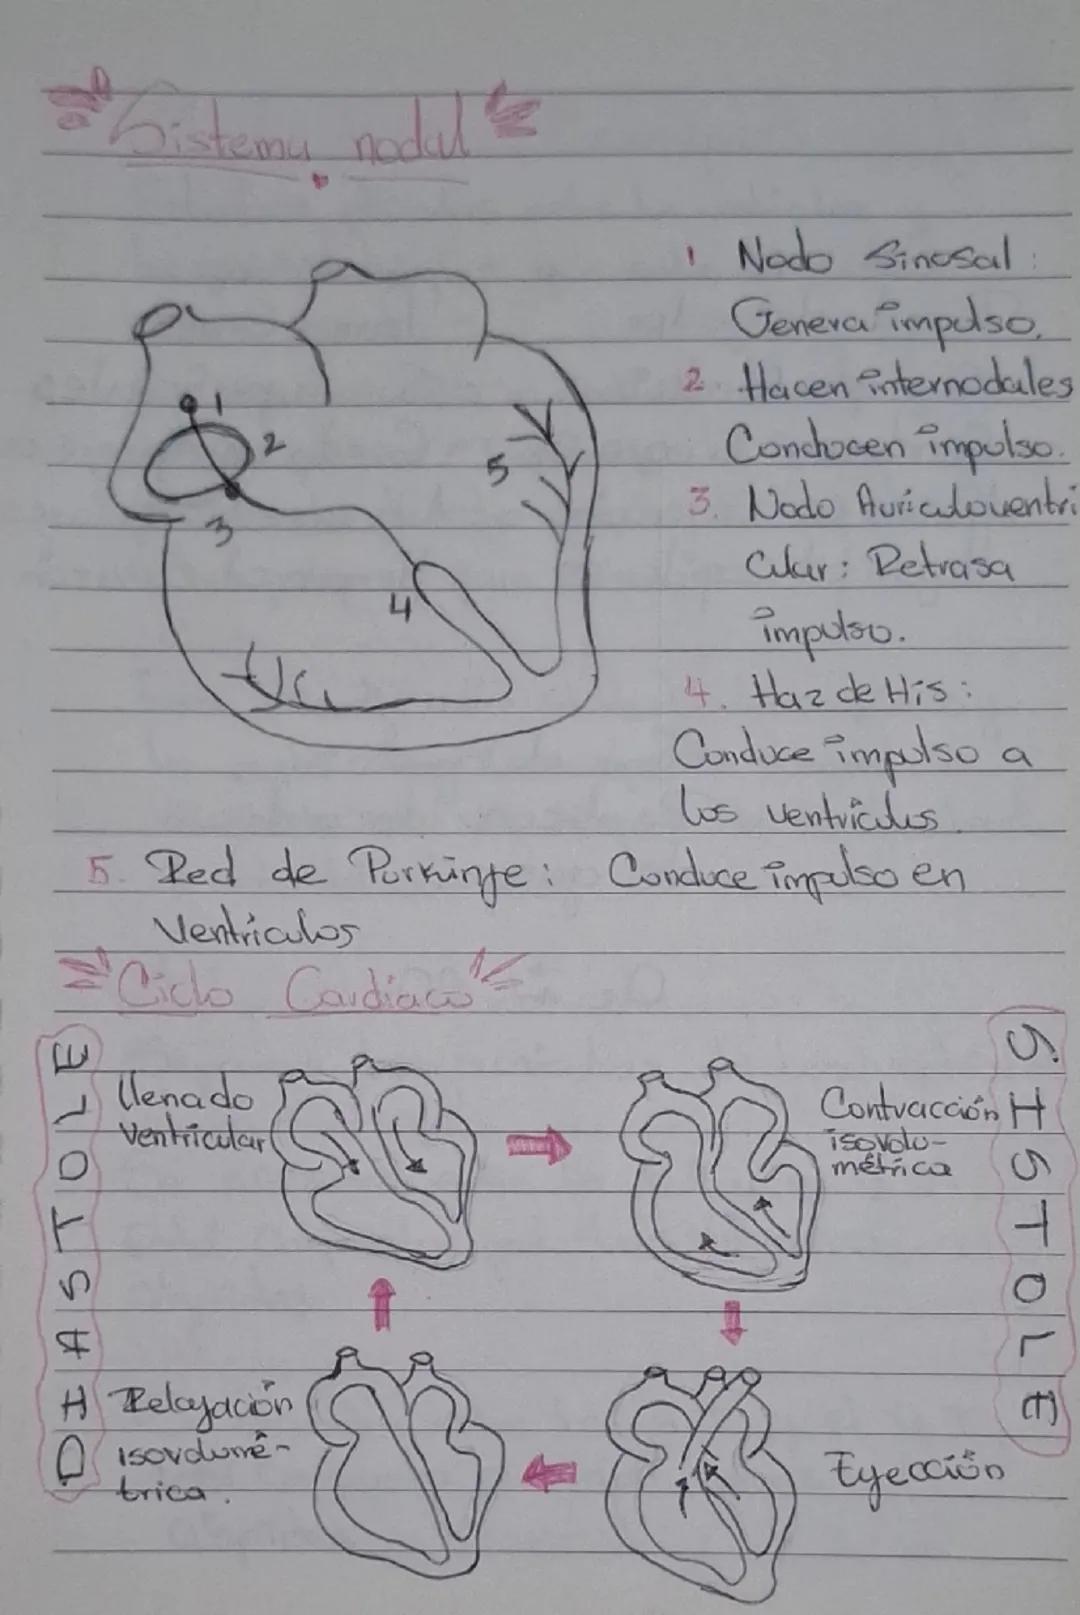 Sistema nodal
1 Nodo Sinosal:
Genera impulso.
2. Hacen internodales
Conducen impulso.
3. Nodo Auriculoventri
cular: Retrasa
impulso.
4. Haz de His:
Conduce impulso a
los ventriculos.
1
2
3
4
5
5. Red de Purkinje: Conduce impulso en
Ventriculos
Ciclo Cardiaco
DIASTOLE
llenado
ventricular
Contracción
isovolu-
métrica
SISTOLE
Relajación
isovolumé-
trica.
Eyección